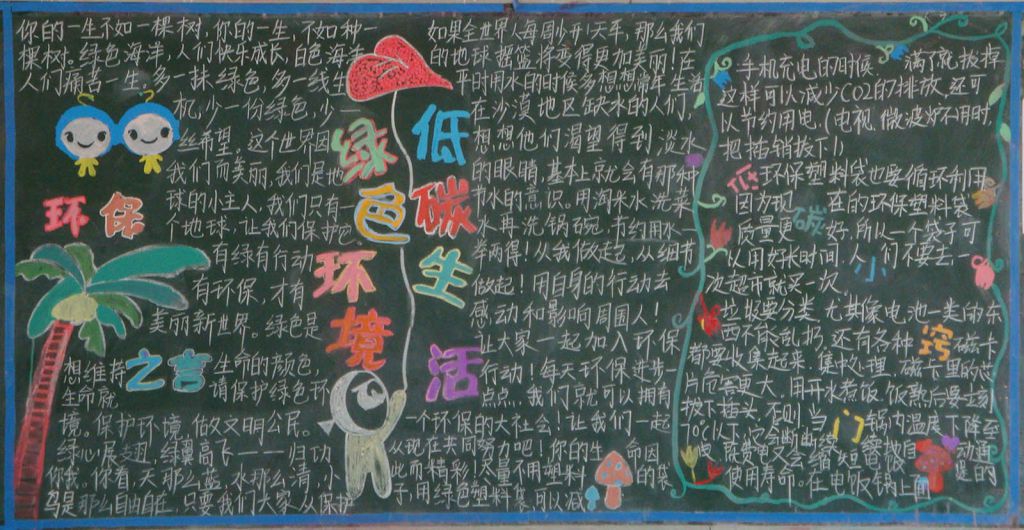 你的一生不如一棵树,你的一生,不如种一
棵树。绿色海洋,人们快乐成长,白色海洋
人们痛苦一生,多一抹绿色,多一线生
机,少一份绿色,少一
丝希望。这个世界因
我们而美丽,我们是地
球的小主人,我们只有一
个地球,让我们保护吧。
有绿有行动
有环保,才有
美丽新世界。绿色是
生命的颜色,
想维持
生命就
请保护绿色环
境。保护环境,做文明公民。
绿心展翅,绿翼高飞——归功
你我。你看天那么蓝,水那么清,小
鸟是那么自由自在,只要我们大家从保护
环保
之言
绿色环境
低碳生活
如果全世界人每周少开一天车,那么我们
的地球摇篮将变得更加美丽!在
平时用水的时候多想想常年生活
在沙漠地区缺水的人们,
想想他们渴望得到淡水
的眼睛,基本上就会有那种
节水的意识。用淘米水洗菜
水再洗锅碗,节约用水一
举两得!从我做起,从细节
做起!用自身的行动去
感动和影响周围人!
让大家一起加入环保
行动!每天环保进步一
点点,我们就可以拥有
一个环保的大社会!让我们一起
从现在共同努力吧!你的生命因
此而精彩!尽量不用塑料的袋
子,用绿色塑料袋,可以减
手机充电的时候,满了就拔掉
这样可以减少CO2的排放,还可
以节约用电(电视,微波炉不用时,
把插销拔下!)
环保塑料袋也要循环利用
因为现在的环保塑料袋
质量更好,所以一个袋子可
以用好长时间,人们不要去一
次超市就买一次
垃圾要分类,尤其像电池一类的东
西不能乱扔,还有各种磁卡
都要收集起来,集中处理,磁卡里的芯
片危害更大,用开水煮饭,饭熟后要立刻
拔下插头,否则,当锅内温度下降至
70℃以下,又会断断续
使用寿命。在电饭锅上面
低碳小窍门